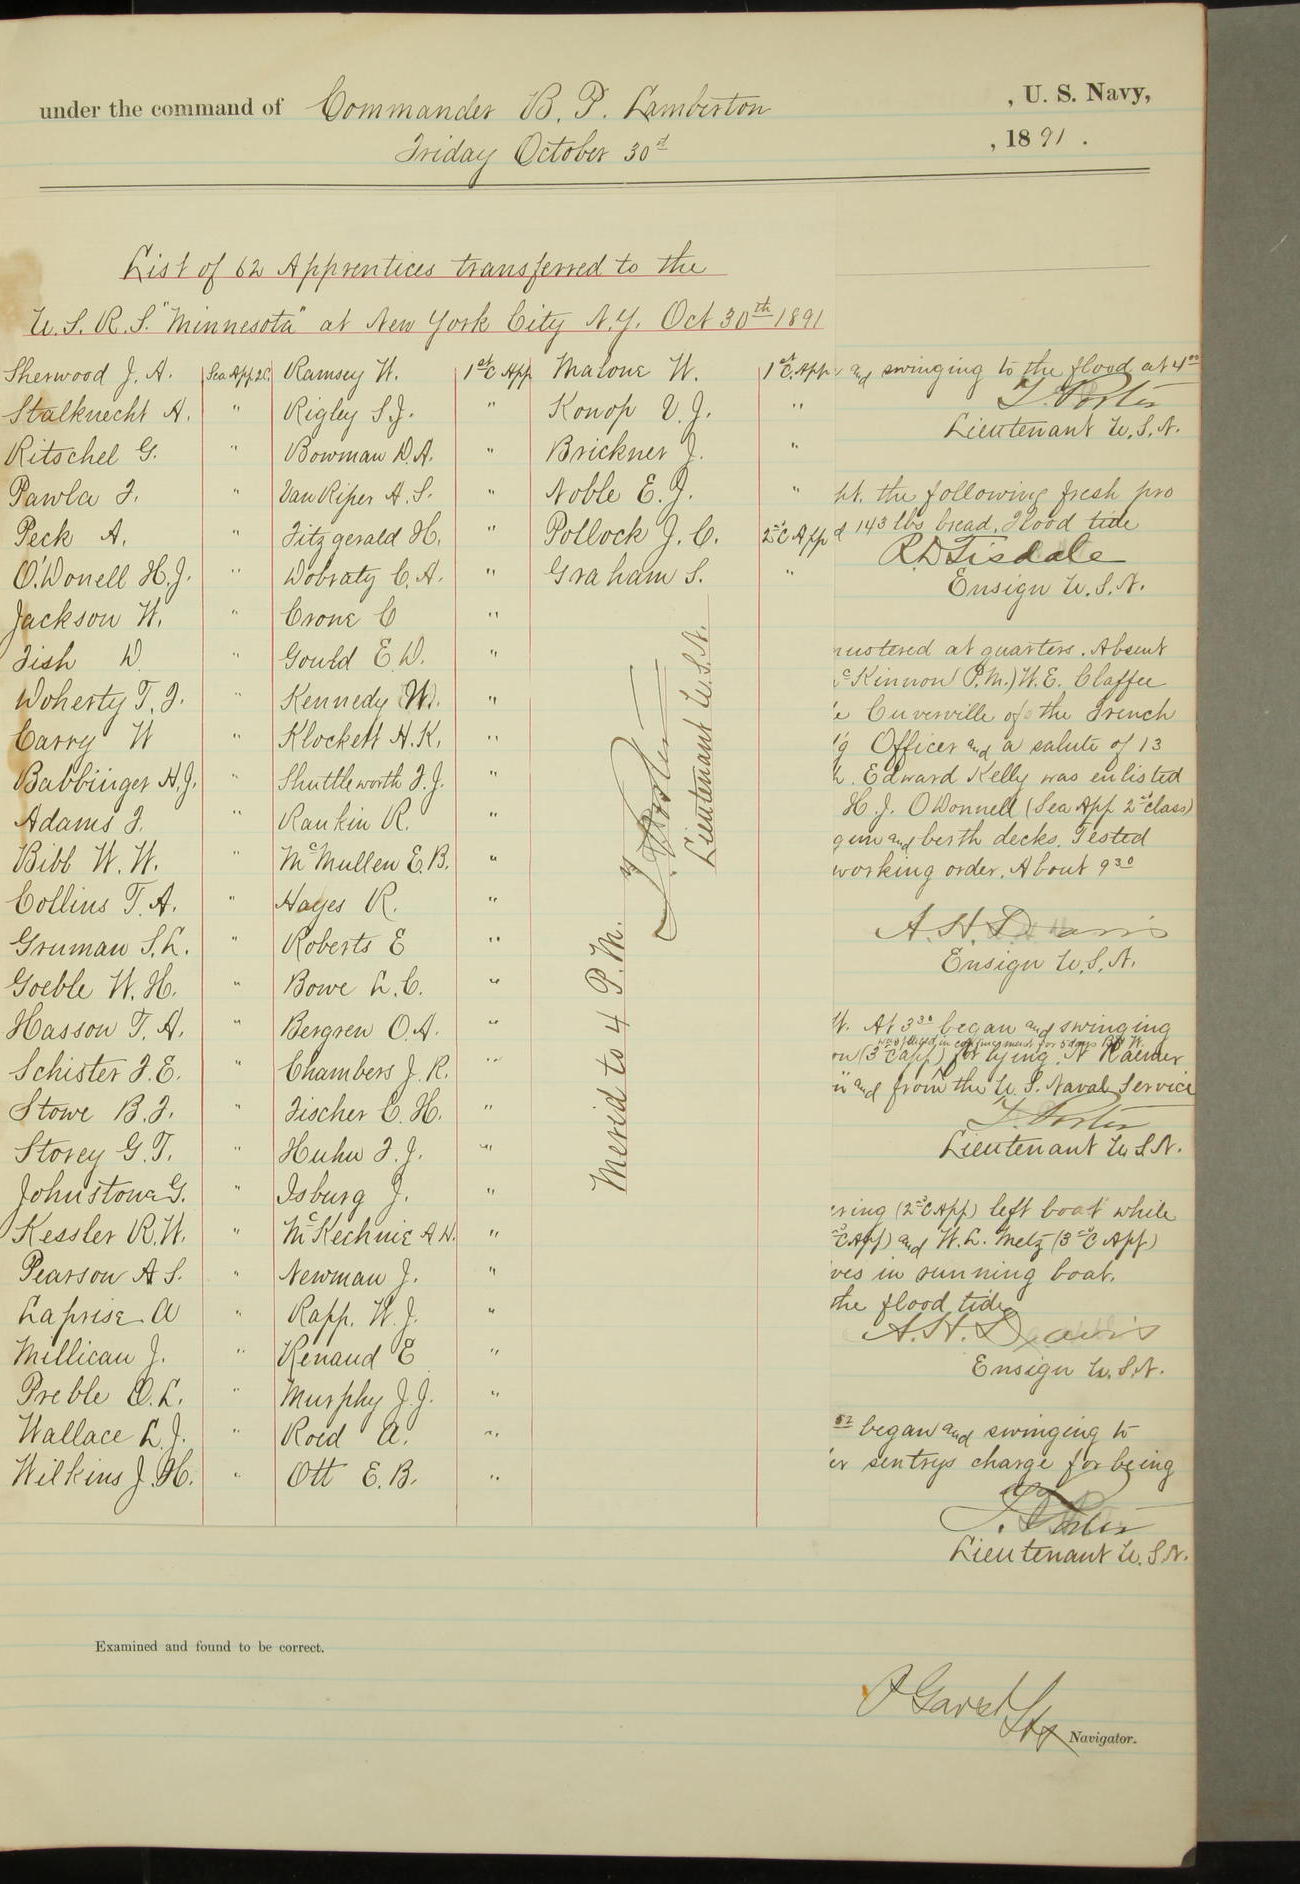 under the command of Commander B. P. Lamberton , U. S. Navy,
Friday October 30th , 1891.
List of 62 Apprentices transferred to the
U.S.R.S. "Minnesota" at New York City N.Y. Oct 30th 1891
Sherwood J. A. Sea App 2C. Ramsey W. 1st C App Malone W. 1st C. App
Stalknecht A. " Rigley S.J. " Konop V. J. "
Ritschel G. " Bowman D.A. " Brickner J. "
Pawla F. " Van Riper A. S. " Noble E. J. "
Peck A. " Fitzgerald H. " Pollock J. C. 2nd C App
O'Donell H.J. " Dobraty C. A. " Graham S. "
Jackson W. " Crone C "
Fish D " Gould E.D. "
Doherty T. F. " Kennedy W. "
Carry W " Klockett H.K. "
Babbinger H.J. " Shuttleworth F.J. "
Adams F. " Rankin R. "
Bibb W. W. " McMullen E.B. "
Collins T. A. " Hayes R. "
Gruman S.L. " Roberts E "
Goeble W. H. " Bowe L.C. "
Hasson T. A. " Bergren O.A. "
Schister F.E. " Chambers J. R. "
Stowe B.F. " Fischer C. H. "
Storey G.T. " Huhn F. J. "
Johnstone G. " Isburg J. "
Kessler R.W. " McKechnie A.H. "
Pearson A S. " Newman J. "
Laprise A " Rapp. W. J. "
Millican J. " Renaud E "
Preble O.L. " Murphy J.J. "
Wallace L.J. " Roed A. "
Wilkins J.H. " Ott E. B. "
Merid to 4 P.M.
T. Porter
Lieutenant U.S.N.
and swinging to the flood at 4 00
T. Porter
Lieutenant U.S.N.
the following fresh pro
143 lbs bread. Flood tide
R.D. Tisdale
Ensign U.S.N.
mustered at quarters. Absent
McKinnon (P.M.) W.E. Claffee
Cuverville of the French
Officer and a salute of 13
Edward Kelly was enlisted
H. J. O'Donnell (Sea App 2nd class)
gun and berth decks. Tested
working order. About 9 30
A. H. Davis
Ensign U.S.N.
At 3 30 began and swinging
was placed in confinement for 5 days B & W.
(3rd C app) for lying. N Kaemer
and from the U. S. Naval Service
T. Porter
Lieutenant U.S.N.
(2nd C App) left boat while
C App) and W. L. Metz (3rd C App)
in running boat.
the flood tide
A. H. Davis
Ensign U.S.N.
began and swinging to
sentrys charge for being
T. Porter
Lieutenant U.S.N.
Examined and found to be correct.
Navigator.